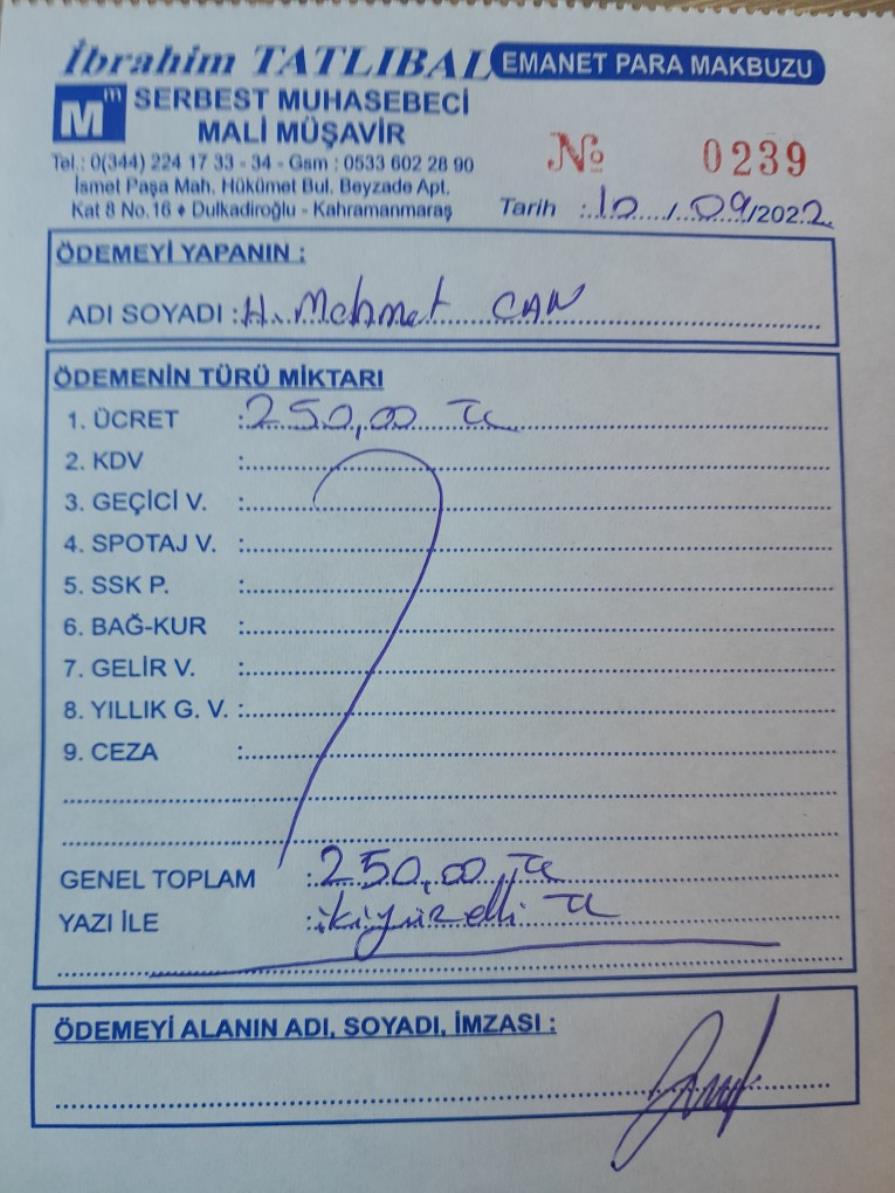 İbrahim TATLIBAL
EMANET PARA MAKBUZU
Mm SERBEST MUHASEBECİ
MALİ MÜŞAVİR
Tel.: 0(344) 224 17 33 - 34 - Gsm : 0533 602 28 90
İsmet Paşa Mah. Hükümet Bul. Beyzade Apt.
Kat 8 No.16 ♦ Dulkadiroğlu - Kahramanmaraş
No 0239
Tarih : 10 / 09/2022
ÖDEMEYİ YAPANIN :
ADI SOYADI : H. Mehmet CAN
ÖDEMENİN TÜRÜ MİKTARI
1. ÜCRET : 250,00 TL
2. KDV :
3. GEÇİCİ V. :
4. SPOTAJ V. :
5. SSK P. :
6. BAĞ-KUR :
7. GELİR V. :
8. YILLIK G. V. :
9. CEZA :
GENEL TOPLAM : 250,00 TL
YAZI İLE : ikiyüzelli TL
ÖDEMEYİ ALANIN ADI, SOYADI, İMZASI :